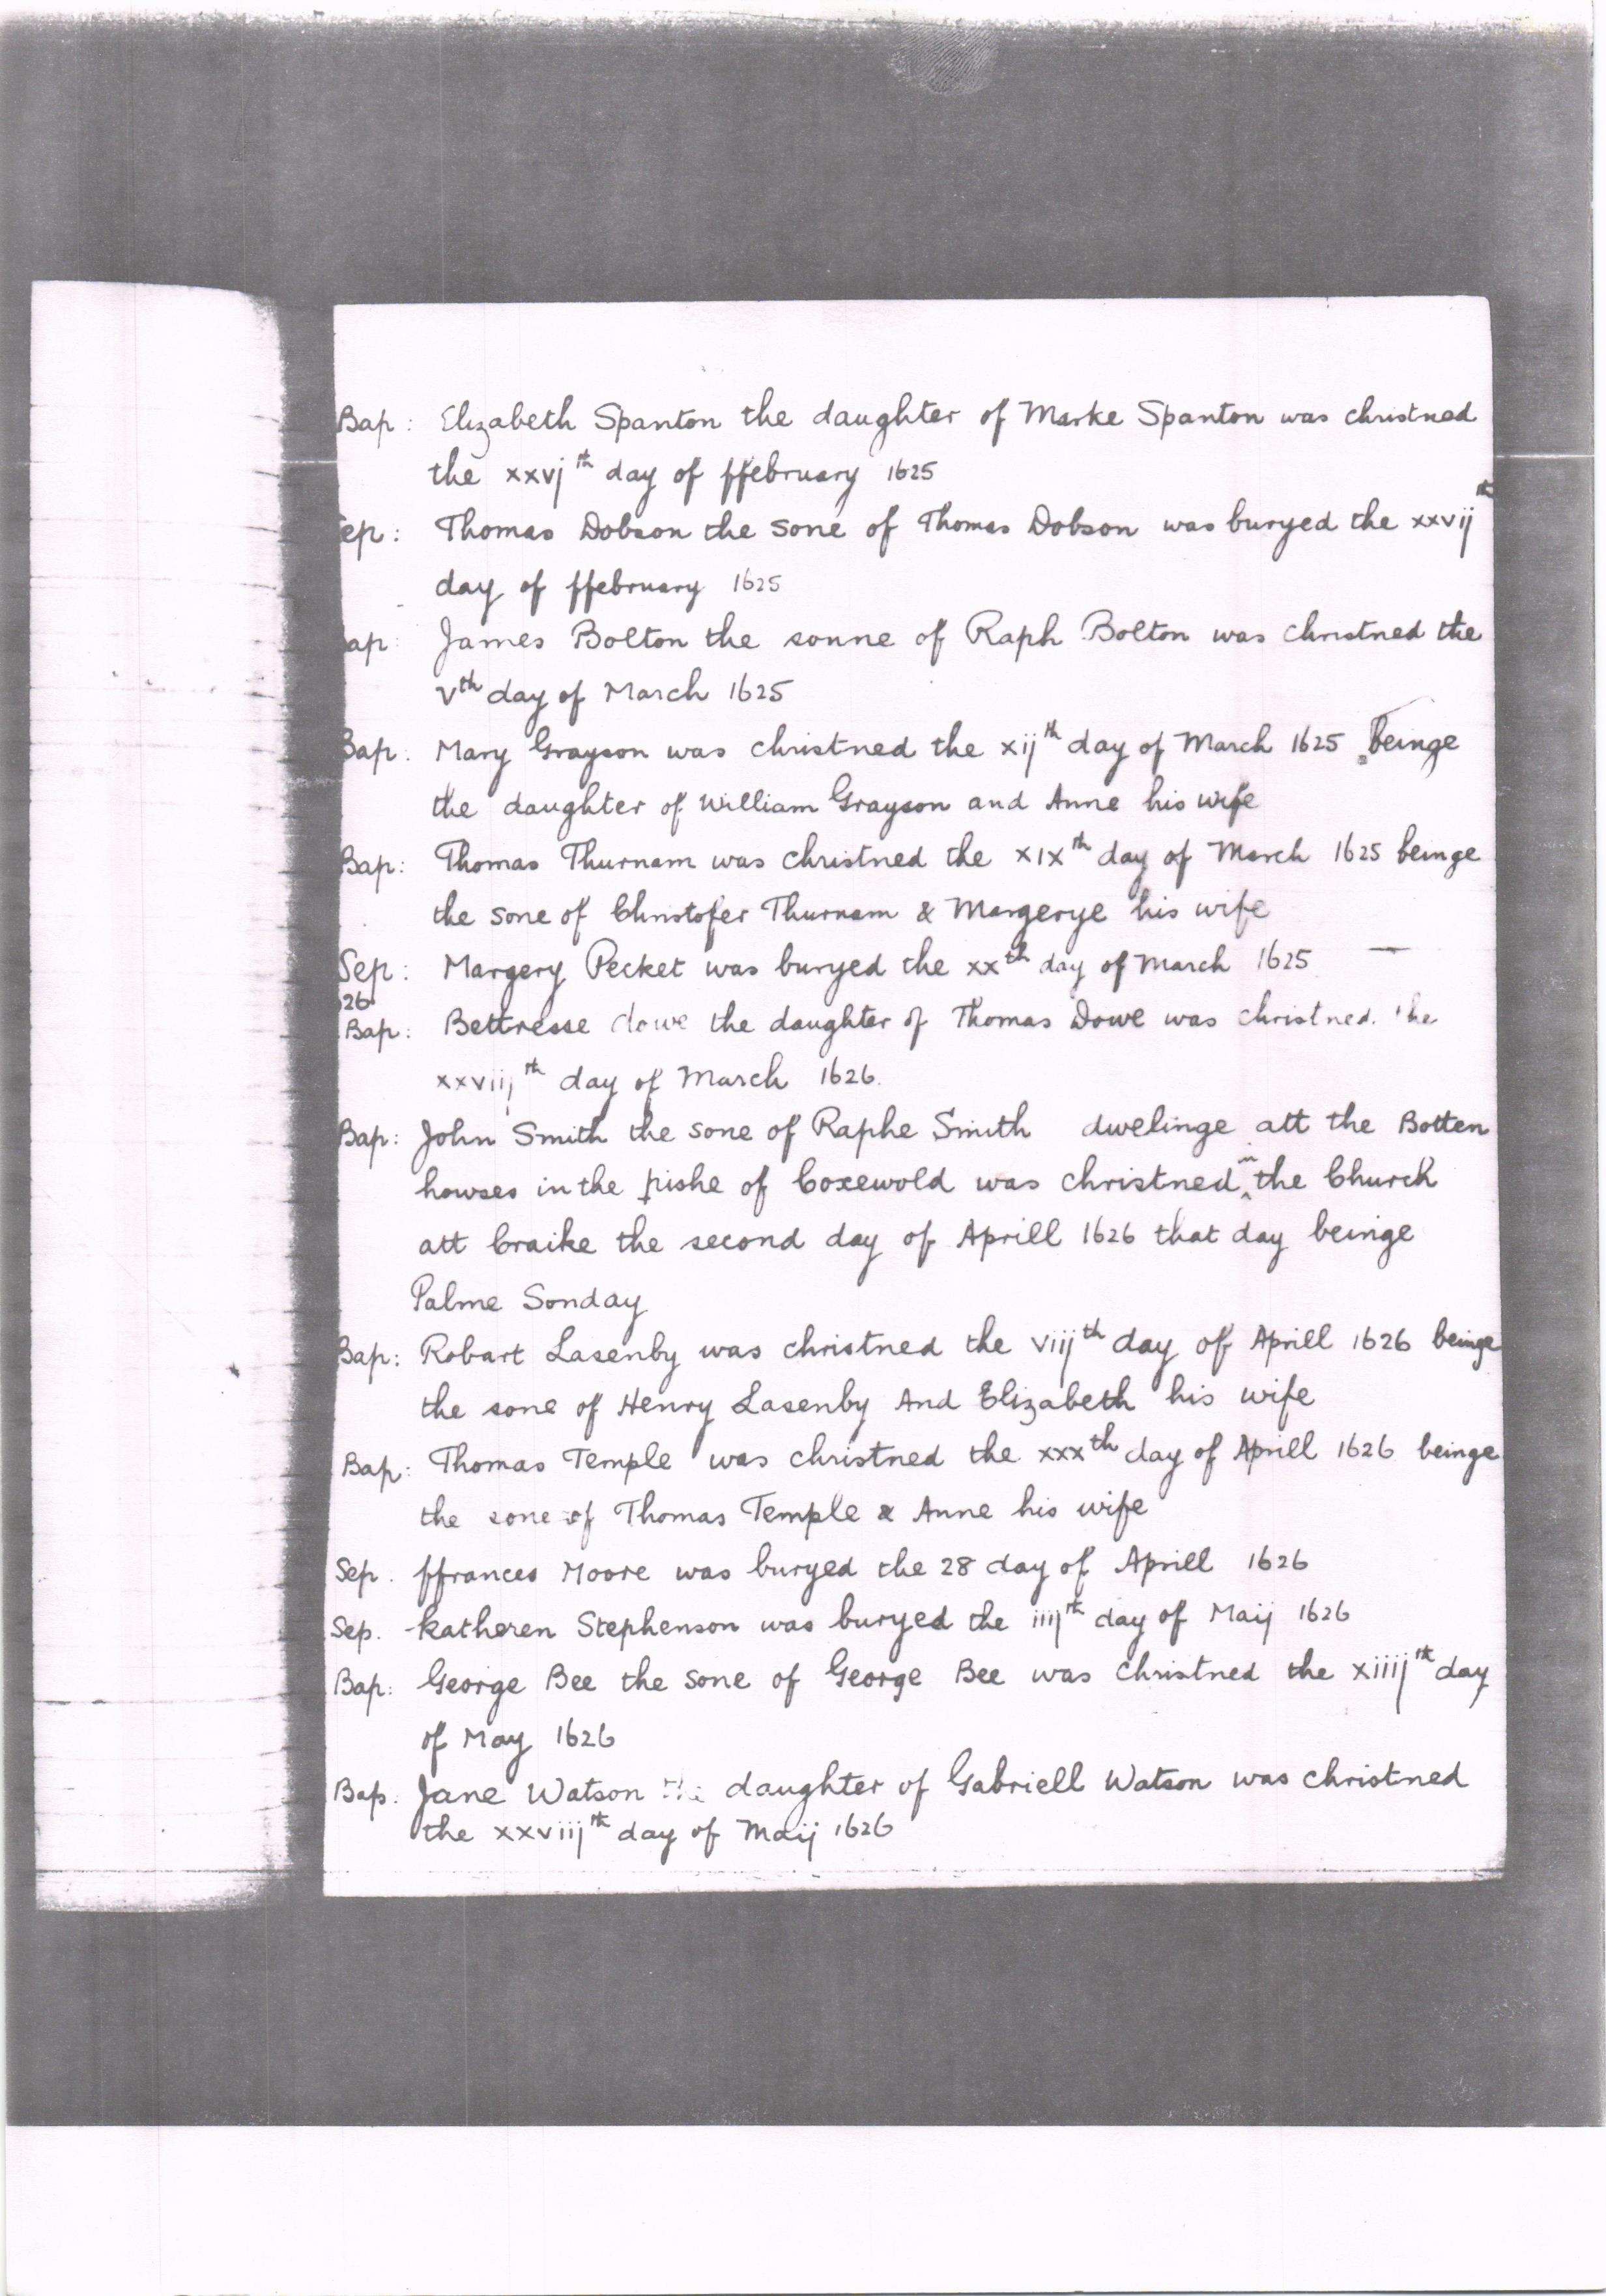 Bap: Elizabeth Spanton the daughter of Marke Spanton was christned
the xxvj th day of ffebruary 1625
ep: Thomas Dobson the sone of Thomas Dobson was buryed the xxvij th
day of ffebruary 1625
ap: James Bolton the sonne of Raph Bolton was christned the
Vth day of March 1625
Bap: Mary Grayson was christned the xij th day of March 1625 beinge
the daughter of William Grayson and Anne his wife
Bap: Thomas Thurnam was christned the xix th day of March 1625 beinge
the sone of Christofer Thurnam & Margerye his wife
Sep: Margery Pecket was buryed the xx th day of March 1625
26
Bap: Bettresse dowe the daughter of Thomas Dowe was christned the
xxviij th day of March 1626.
Bap: John Smith the sone of Raphe Smith dwelinge att the Botten
howses in the prishe of Coxewold was christned in the Church
att Craike the second day of Aprill 1626 that day beinge
Palme Sonday
Bap: Robart Lasenby was christned the viij th day of Aprill 1626 beinge
the sone of Henry Lasenby And Elizabeth his wife
Bap: Thomas Temple was christned the xxx th day of Aprill 1626 beinge
the sone of Thomas Temple & Anne his wife
Sep. ffrances Moore was buryed the 28 day of Aprill 1626
Sep. Katheren Stephenson was buryed the iiij th day of Maij 1626
Bap: George Bee the sone of George Bee was christned the xiiij th day
of May 1626
Bap. Jane Watson the daughter of Gabriell Watson was christned
the xxviij th day of Maij 1626